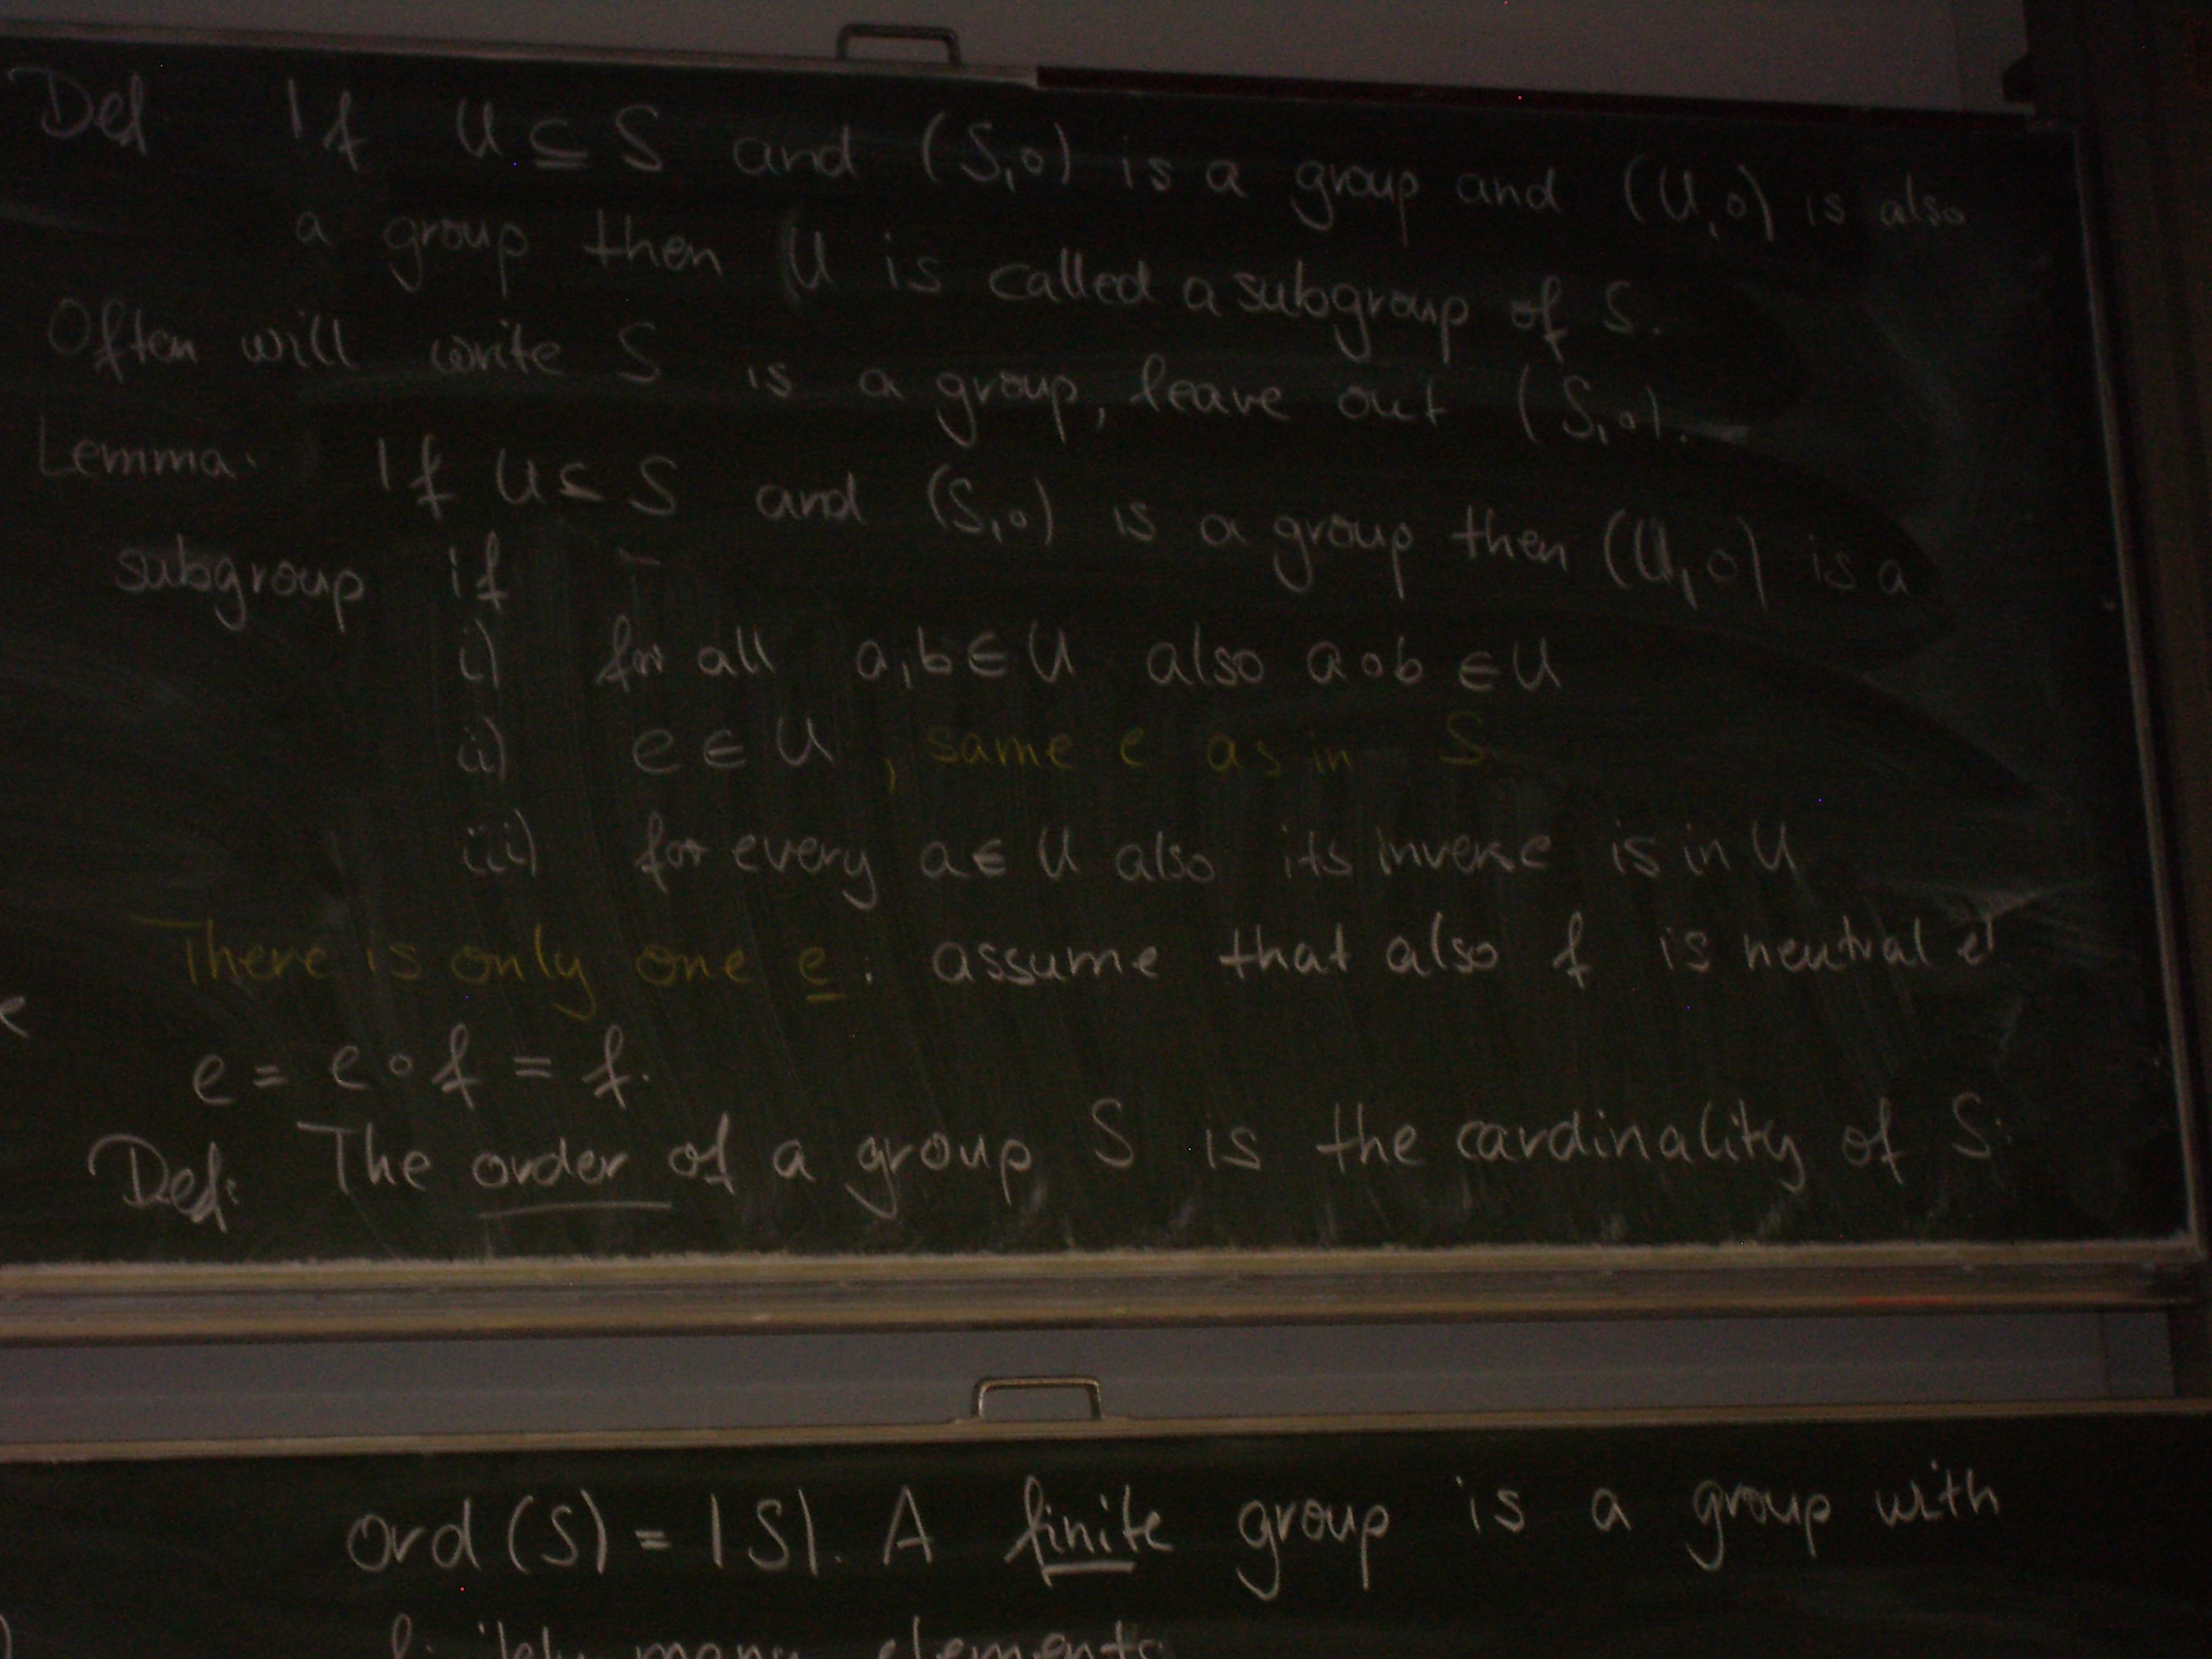 Def If U ⊆ S and (S,∘) is a group and (U,∘) is also
a group then U is called a subgroup of S.
Often will write S is a group, leave out (S,∘).
Lemma. If U ⊂ S and (S,∘) is a group then (U,∘) is a
subgroup if
i) for all a,b ∈ U also a∘b ∈ U
ii) e ∈ U, same e as in S
iii) for every a ∈ U also its inverse is in U
There is only one e: assume that also f is neutral el
e = e∘f = f.
Def: The order of a group S is the cardinality of S:
ord(S) = |S|. A finite group is a group with
many elements.